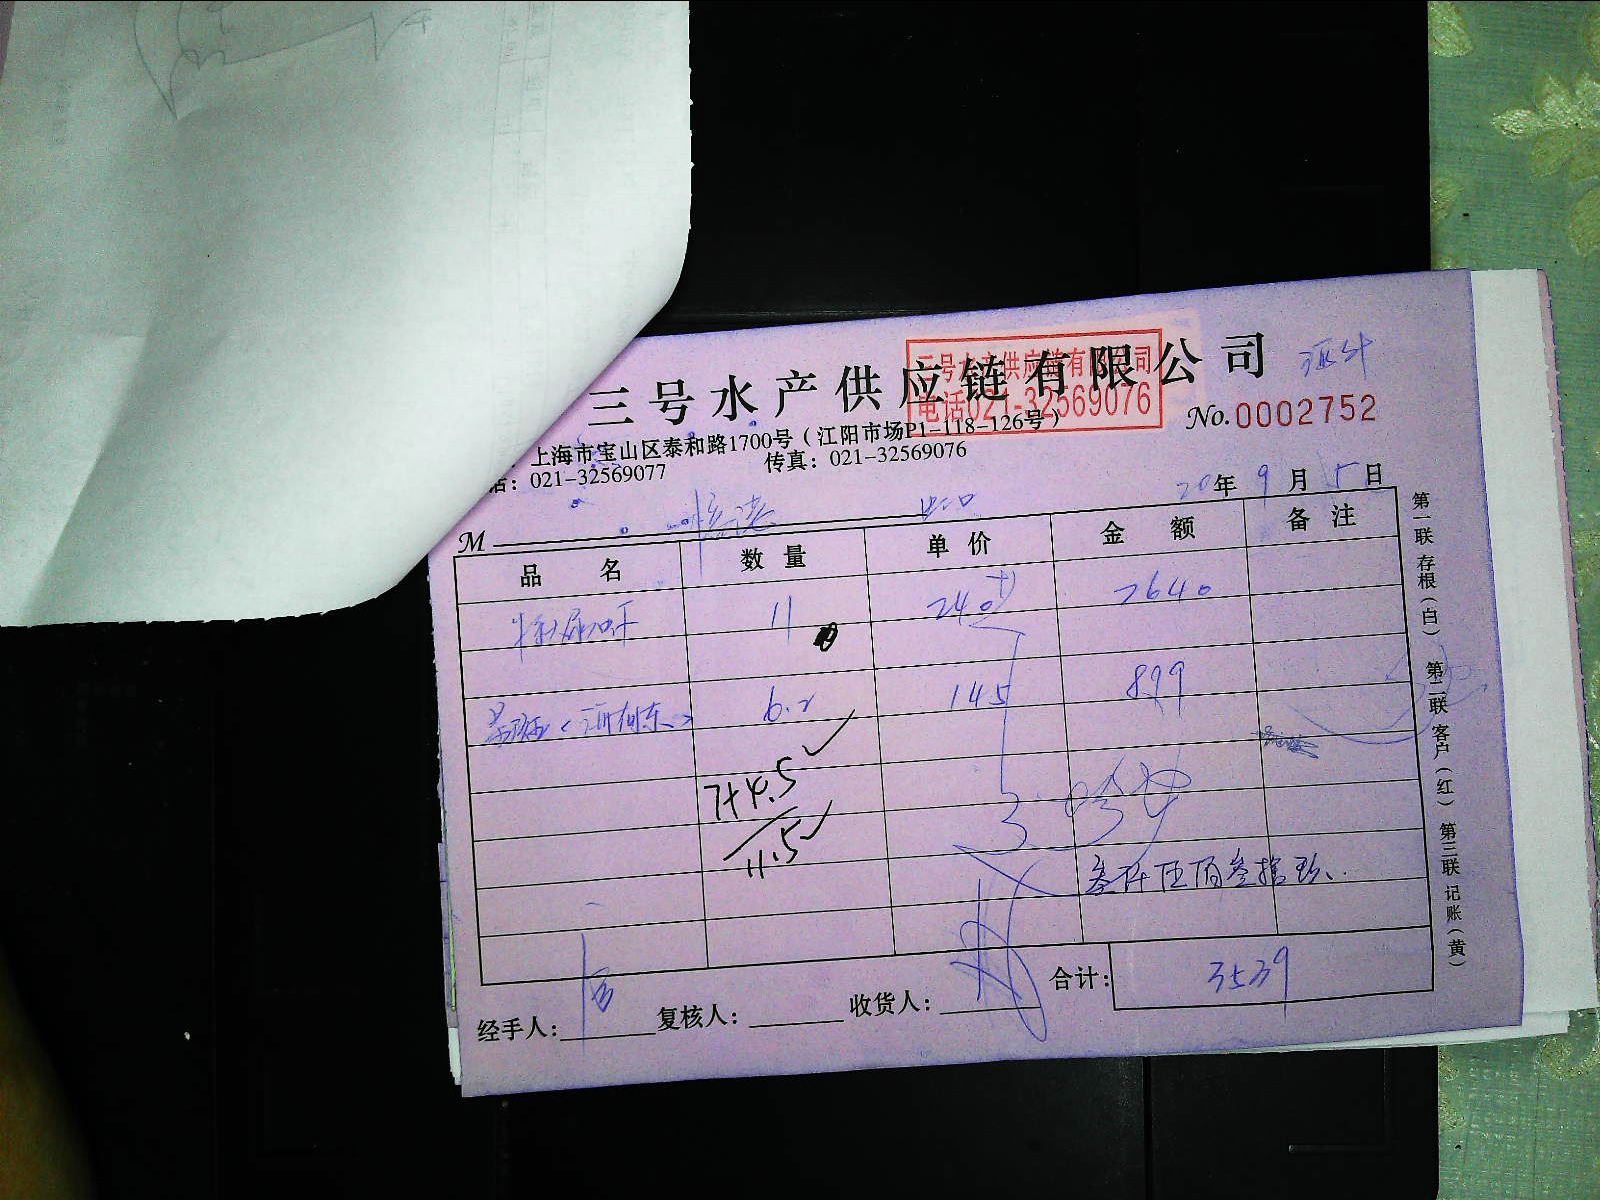 三号水产供应链有限公司
三号水产供应链有限公司
电话021-32569076
No.0002752
上海市宝山区泰和路1700号（江阳市场P1-118-126号）
话：021-32569077 传真：021-32569076
20年9月5日
M
品名 数量 单价 金额 备注
11 240 2640
6.2 145 899
7+4.5
11.5
叁仟伍佰叁拾玖
合计： 3539
经手人： 复核人： 收货人：
第一联 存根（白） 第二联 客户（红） 第三联 记账（黄）